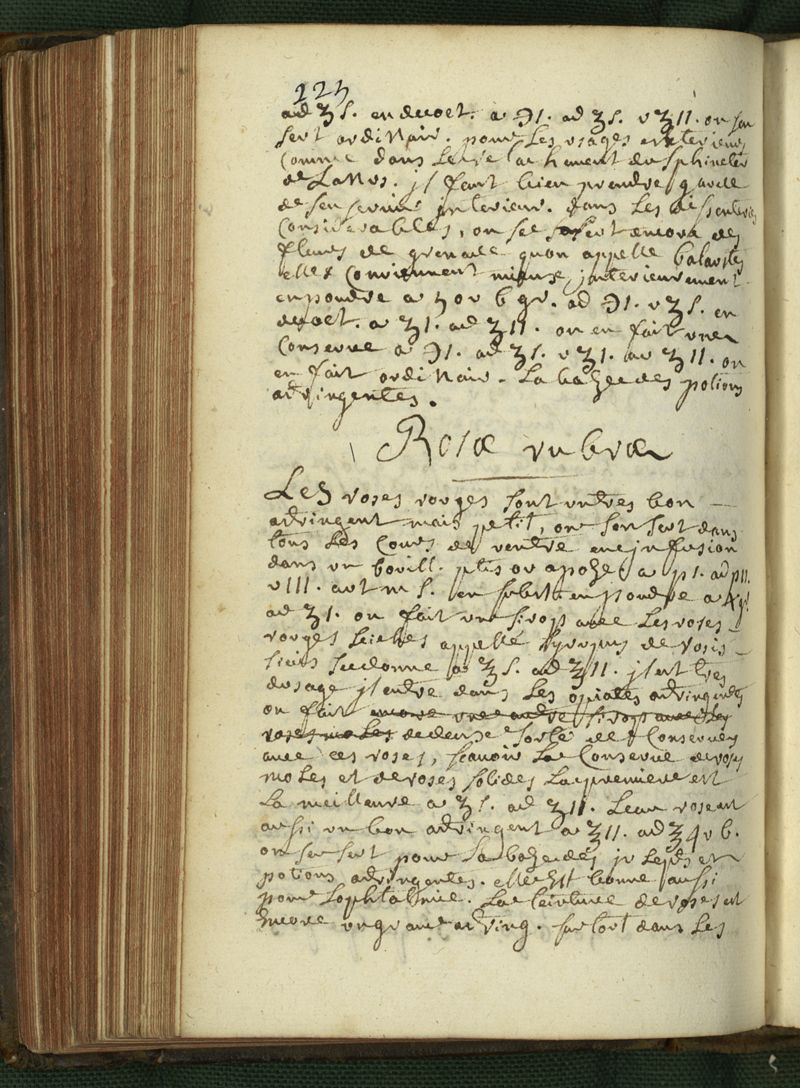 225
ad ʒ s. en decoct. a ℈ 1. ad ʒ s. v ʒ 11. on san
sert ordinair. pour les usages exterieurs
comme dans le relachement du sphincter
de Lanus. jl faut bien prendre garde
de sen servir jnterieur. dans les dissenteries
considerables, on se sert encore des
fleurs de grenade quon appelle balaustes
elles conviennent mieux jnterieurement
en poudre a 5 ou 6 gr. ad ℈ 1. v ʒ s. en
decoct. a ʒ 1. ad ʒ 11. on en fait une
conserve a ℈ 1. ad ʒ s. v ʒ 1. au ʒ 11. on
en fait ordinair. la baze des potions
adringentes.
Rosæ rubræ
Les roses rouges sont un tres bon
adringent mais petit, on san sert dans
tous les cours de ventre en jnfusion
dans un bouill. ptis. ou apoze. a p 1. ad p 11.
v 111. aut m s. en subst. en poudre a 4 g.
ad ʒ 1. on fait un sirop avec les roses
rouges seiches appellé syropus de rosis
siccis se donne a ʒ s. ad ʒ 11. jl est tres
dusage jl entre dans les opiates adringentes
on fait encore une autre sirop avec les
roses molles de deux sorte de conserves
avec ces roses, scavoir la conserve de roses
moles et de roses solides la premiere est
la meilleure a ʒ s. ad ʒ 11. leau rose est
aussi un bon adringent a ʒ 11. ad ʒ 4 v 6.
on sen sert pour la baze des juleps et
potions adringentes. elle est bonne aussi
pour lophtalmie. la teinture de roses est
encore un grand adring. surtout dans les